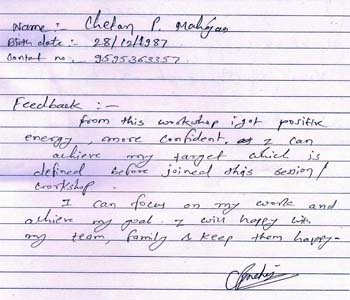 Name :- Chetan P. Mahajan
Birth date :- 28/12/1987
Contact no. 9595363357
Feedback :-
from this workshop i got positive
energy, more confident. I can
achieve my target which is
defined before joined this session/
workshop.
I can focus on my work and
achieve my goal. I will happy with
my team, family & keep them happy-